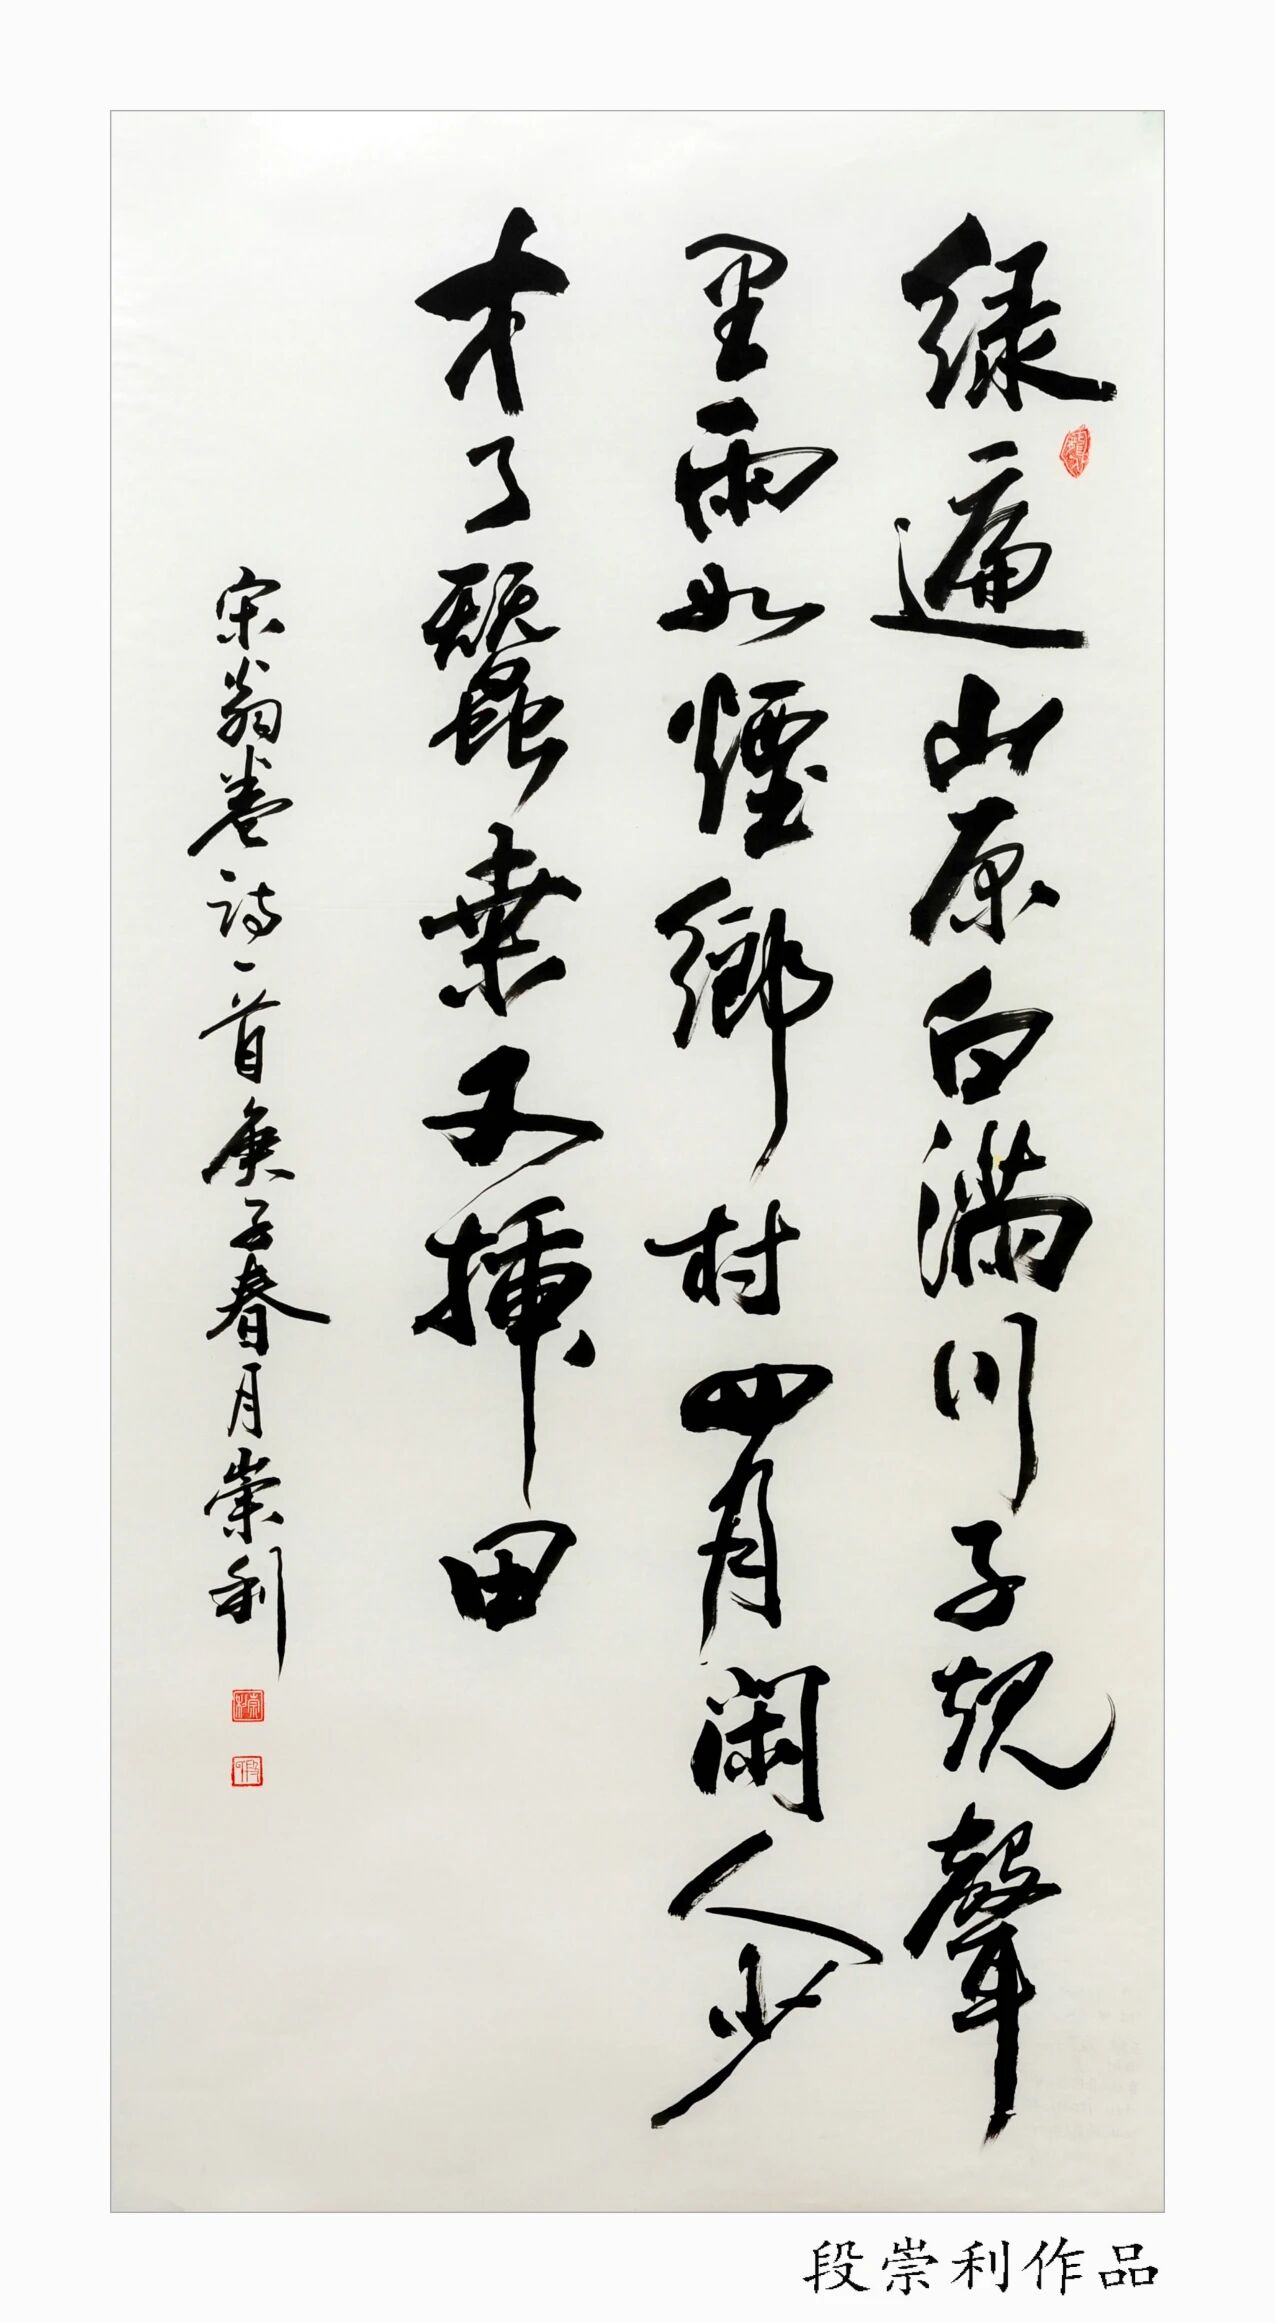 绿遍山原白满川子规聲
里雨如煙鄉村四月闲人少
才了蠶桒又插田
宋翁卷詩一首庚子春月崇利
崇利
段崇利作品